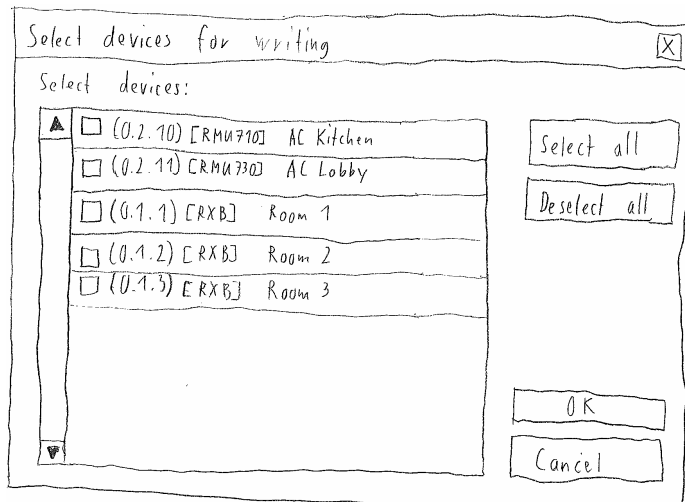 Select devices for writing X
Select devices:
(0.2.10) [RMU710] AC Kitchen
(0.2.11) [RMU730] AC Lobby
(0.1.1) [RXB] Room 1
(0.1.2) [RXB] Room 2
(0.1.3) [RXB] Room 3
Select all
Deselect all
OK
Cancel